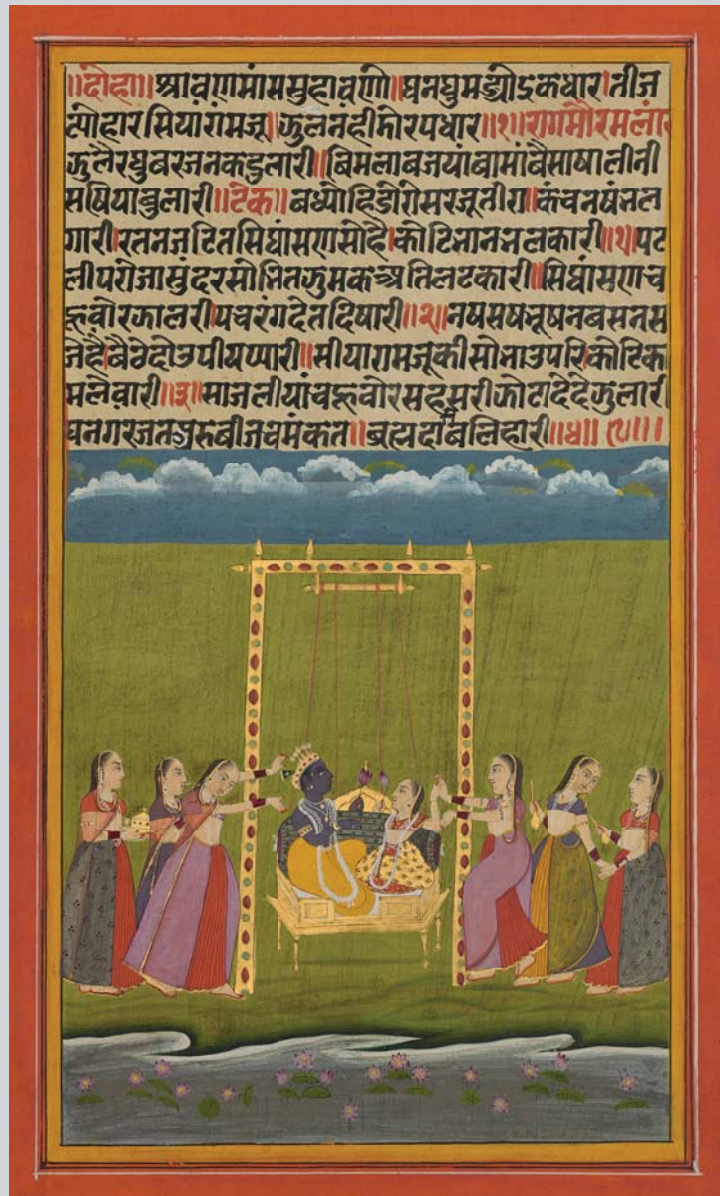 ॥दोहा॥श्रावणमांससुहावणो॥घनघुमड्योऽकधार।तीज
त्योहारसियारांमजू।जुलनहीडोरपधार॥१॥रागमौरमलार
जुलैरघुबरजनकदुलारी॥बिमलाबजयांबामांबैसाषालीनी
सषियांबुलारी॥टेक॥बध्योहिडोरोसरजूतीरा।कंचनषंन्नल
गारी।रतनजटितसिघांसणसोहै।कोटिनाननलकारी॥१॥पट
लीपरोजासुंदरसोनितजुमकञ्प्रतिलटकारी॥सिघांसणच
ह्नवोरजालरी।पचरंगदेतदिषारी॥२॥नषसषनूषनबसनस
जेहै।बैठेदोउपीयप्यारी॥सीयारामजूकीसोनाउपरि।कोटिक
मलेवारी॥३॥साजलीयांचह्नवोरसहसरी।जोटादेदेजुलारी
घनगरजतअरुबीजचमंकत॥ब्रह्मदासबलिहारी॥४॥